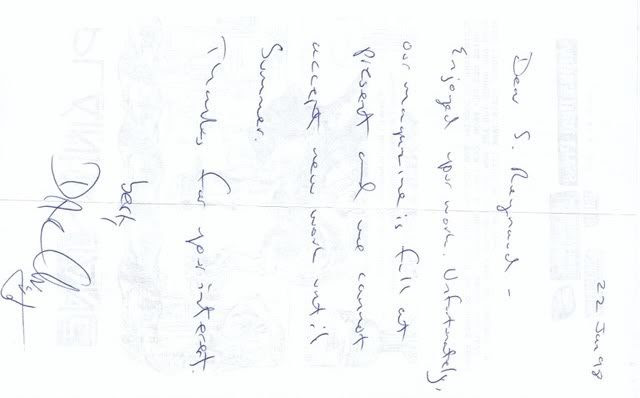 22 Jan 98
Dear S. Raymond -
Enjoyed your work. Unfortunately,
our magazine is full at
present and we cannot
accept new work until
Summer.
Thanks for your interest.
best,